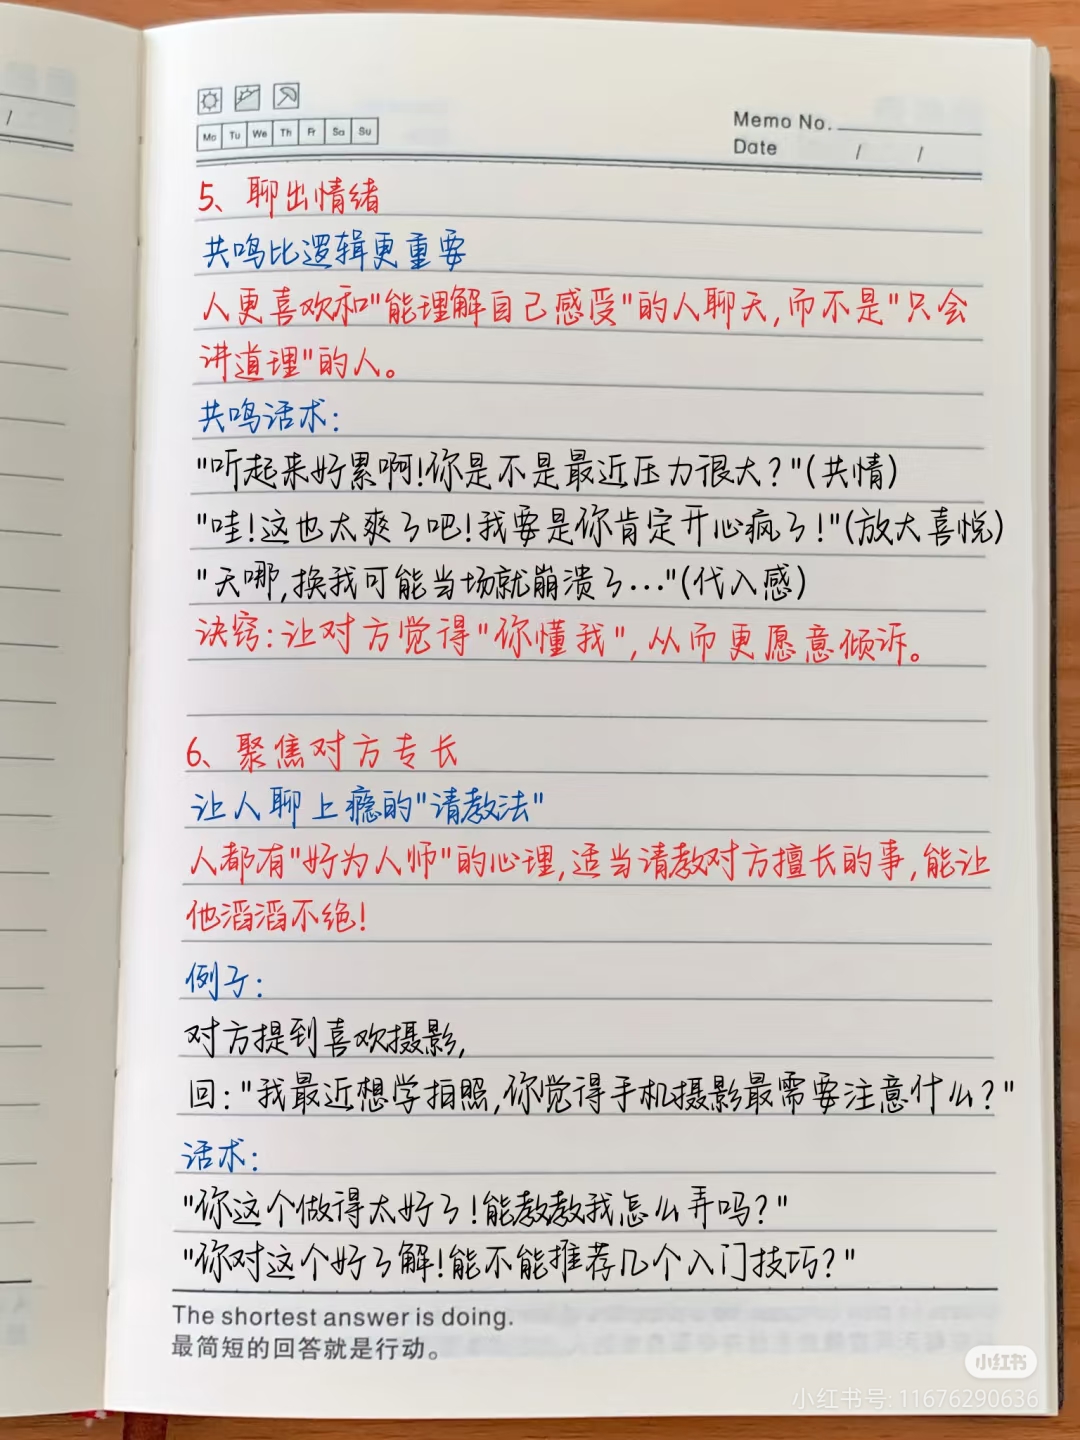 Mo Tu We Th Fr Sa Su
Memo No.
Date / /
5、聊出情绪
共鸣比逻辑更重要
人更喜欢和"能理解自己感受"的人聊天,而不是"只会
讲道理"的人。
共鸣话术:
"听起来好累啊!你是不是最近压力很大?"(共情)
"哇!这也太爽了吧!我要是你肯定开心疯了!"(放大喜悦)
"天哪,换我可能当场就崩溃了..."(代入感)
诀窍:让对方觉得"你懂我",从而更愿意倾诉。
6、聚焦对方专长
让人聊上瘾的"请教法"
人都有"好为人师"的心理,适当请教对方擅长的事,能让
他滔滔不绝!
例子:
对方提到喜欢摄影,
回:"我最近想学拍照,你觉得手机摄影最需要注意什么?"
话术:
"你这个做得太好了!能教教我怎么弄吗?"
"你对这个好了解!能不能推荐几个入门技巧?"
The shortest answer is doing.
最简短的回答就是行动。
小红书
小红书号: 11676290636